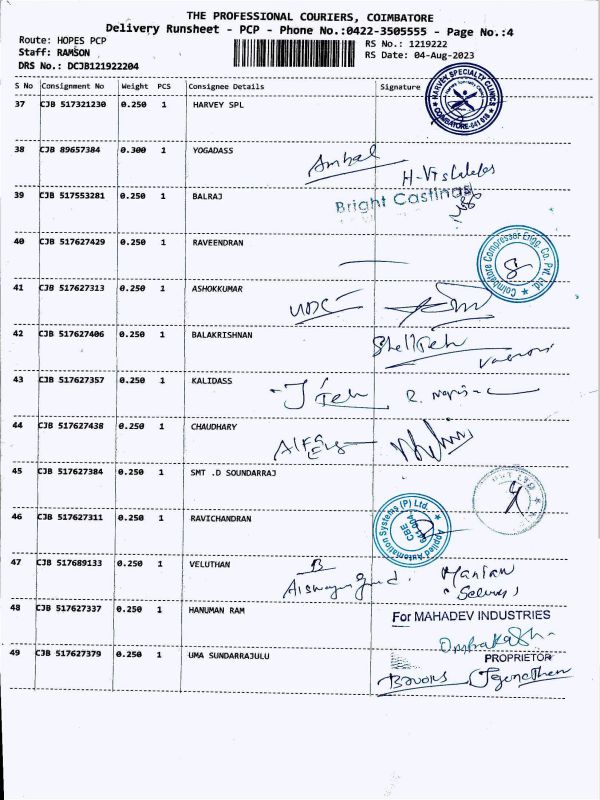 THE PROFESSIONAL COURIERS, COIMBATORE
Delivery Runsheet - PCP - Phone No.:0422-3505555 - Page No.:4
Route: HOPES PCP
RS No.: 1219222
Staff: RAMSON
RS Date: 04-Aug-2023
DRS No.: DCJB121922204
S No Consignment No Weight PCS Consignee Details Signature
HARVEY SPECIALITY CLINICS
COIMBATORE-641 018
37 CJB 517321230 0.250 1 HARVEY SPL
38 CJB 89657384 0.300 1 YOGADASS
Ambal
39 CJB 517553281 0.250 1 BALRAJ
Bright Castings
40 CJB 517627429 0.250 1 RAVEENDRAN
Coimbatore Compressor Engg. Co. Pvt. Ltd.
41 CJB 517627313 0.250 1 ASHOKKUMAR
UDC
42 CJB 517627406 0.250 1 BALAKRISHNAN
43 CJB 517627357 0.250 1 KALIDASS
44 CJB 517627438 0.250 1 CHAUDHARY
45 CJB 517627384 0.250 1 SMT .D SOUNDARRAJ
46 CJB 517627311 0.250 1 RAVICHANDRAN
Applied Automation Systems (P) Ltd.
CBE
47 CJB 517689133 0.250 1 VELUTHAN
48 CJB 517627337 0.250 1 HANUMAN RAM
For MAHADEV INDUSTRIES
49 CJB 517627379 0.250 1 UMA SUNDARRAJULU
PROPRIETOR